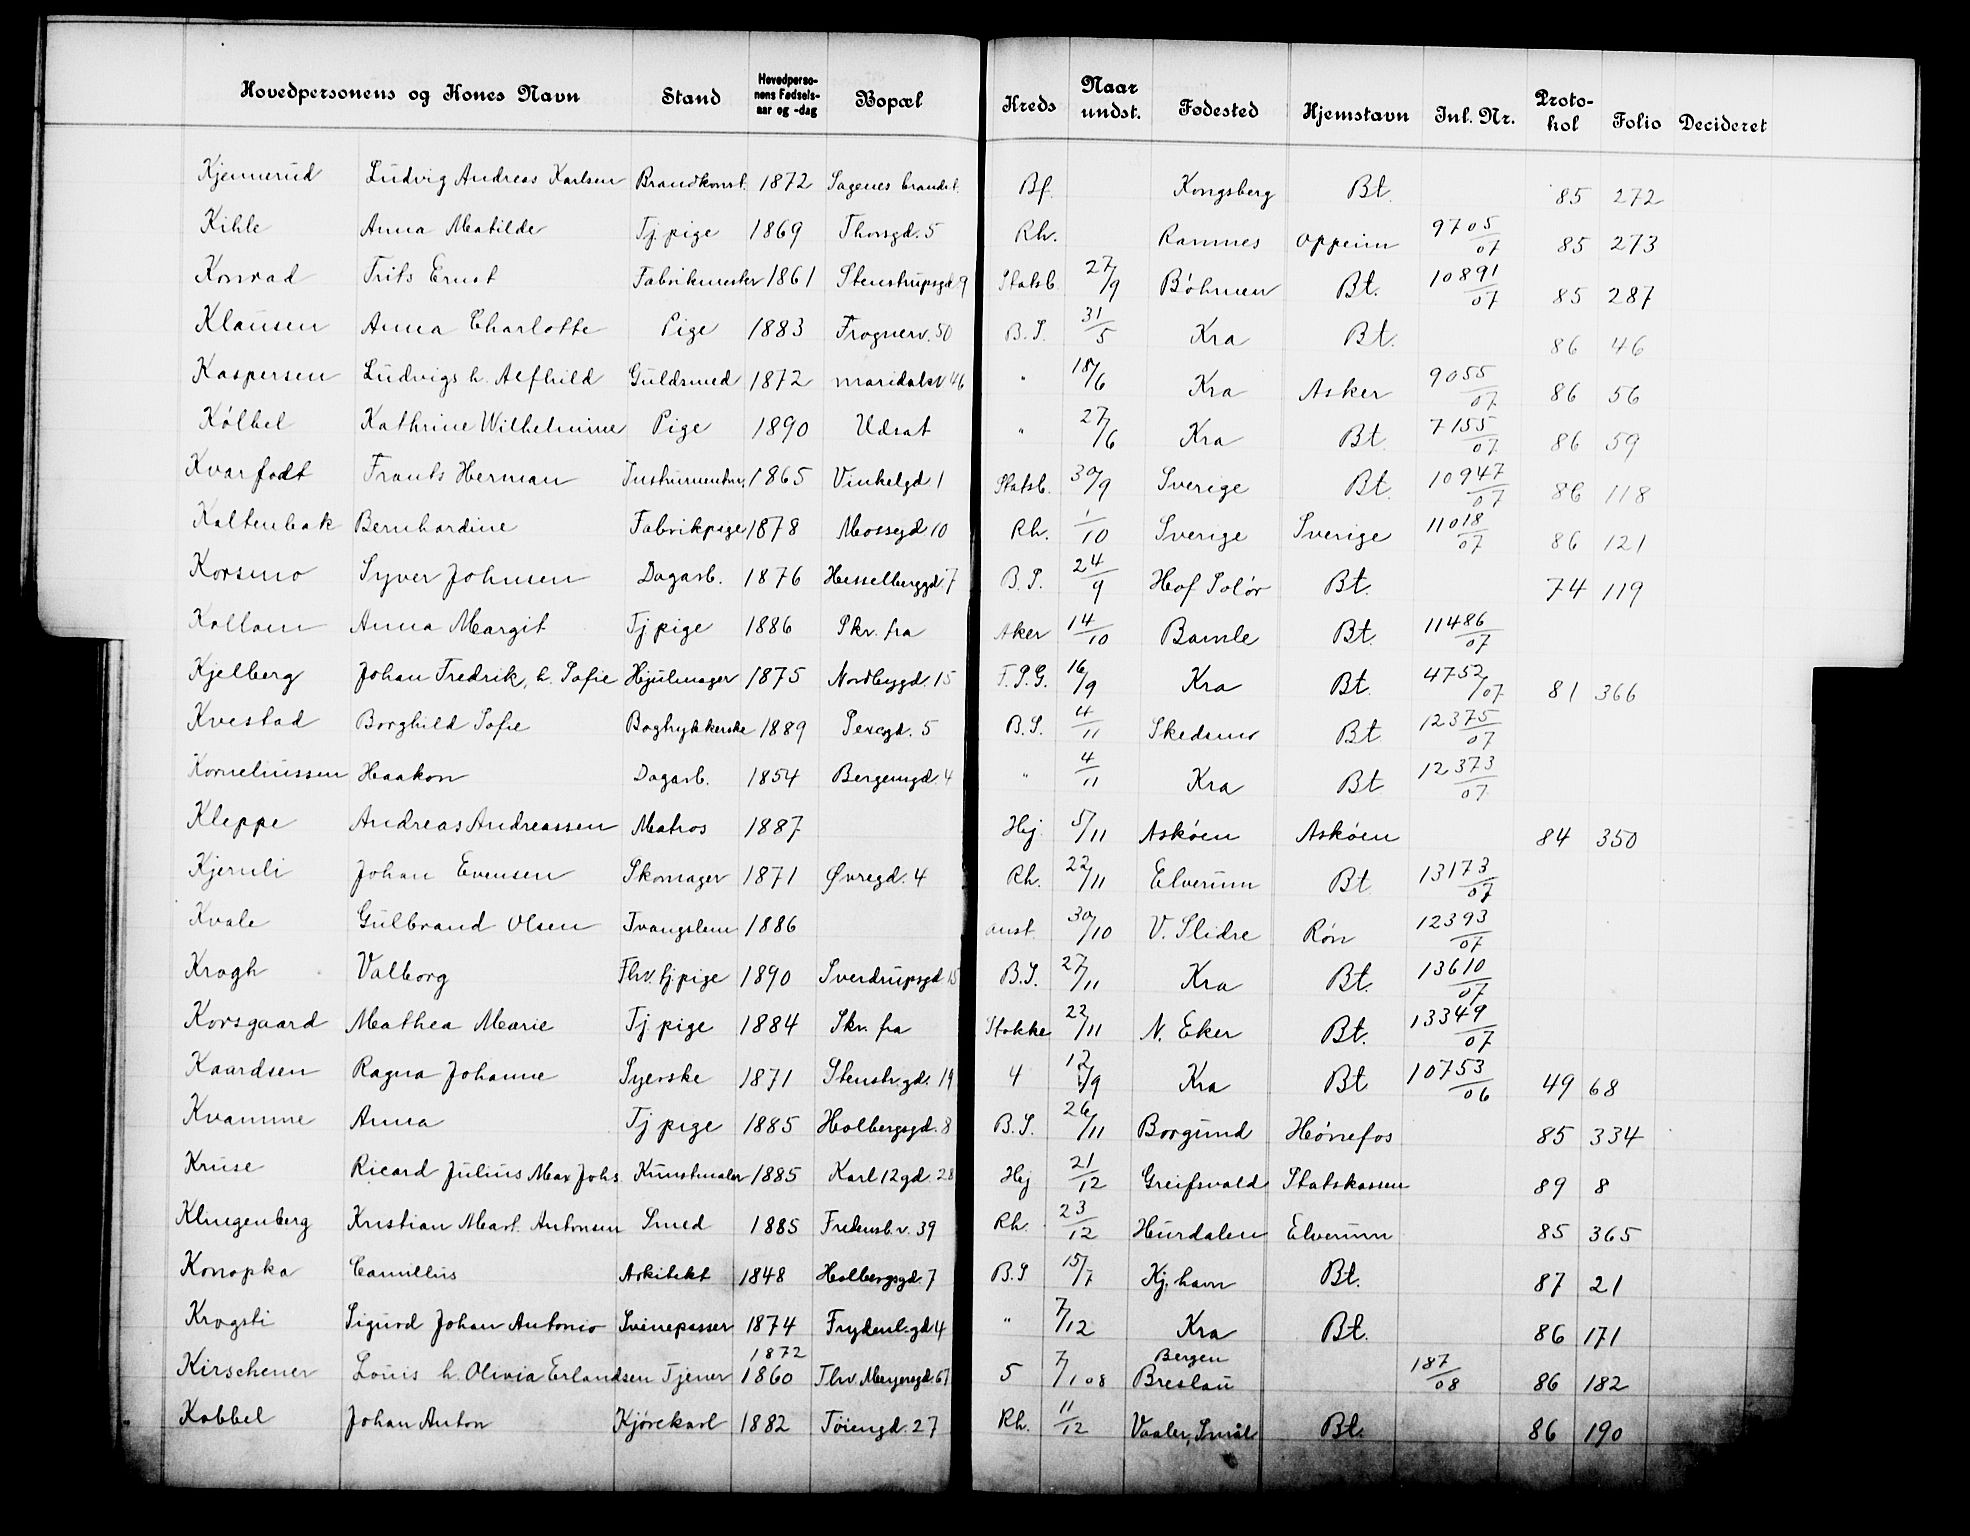 Hovedpersonens og Kones Navn Stand Hovedperso-nens Fødsels-aar og -dag Bopæl Kreds Naar undst. Fødested Hjemstavn Inl. Nr. Proto-kol Folio Decideret
Kjennerud Ludvig Andreas Karlsen Brandkonst. 1872 Sagenes brandst. Bf. Kongsberg Bt. 85 272
Kihle Anna Matilde Tj. pige 1869 Thorsgd. 5 Rh. Ramnes Oppeim 9705/07 85 273
Konrad Frits Ernst Fabrikmester 1861 Stenstrupsgd 9 Statsb. 27/9 Bøhmen Bt. 10891/07 85 287
Klausen Anna Charlotte Pige 1883 Frognerv. 50 B.S. 31/5 Kra Bt. 86 46
Kaspersen Ludvigs h. Alfhild Guldsmed 1872 Maridalsv 46 " 18/6 Kra Asker 9055/07 86 56
Kølbel Kathrine Wilhelmine Pige 1890 Udsat " 27/6 Kra Bt. 7155/07 86 59
Kvarfodt Frants Herman Instrumentm. 1865 Vinkelgd. 1 Statsb. 30/9 Sverige Bt. 10947/07 86 118
Kaltenbak Bernhardine Fabrikpige 1878 Mossegd. 10 Rh. 1/10 Sverige Sverige 11018/07 86 121
Korsmo Syver Johnsen Dagarb. 1876 Hesselberggd. 7 B.S. 24/9 Hof Solør Bt. 74 119
Kollam Anna Margit Tj pige 1886 Skr. fra Aker 14/10 Bamle Bt. 11486/07
Kjelberg Johan Fredrik, h. Sofie Hjulmager 1875 Nordbygd. 15 F.S.G. 16/9 Kra Bt. 4752/07 81 366
Kvestad Borghild Sofie Bogtrykkerske 1889 Pexegd. 5 B.S. 4/11 Skedsmo Bt 12375/07
Korneliussen Haakon Dagarb. 1854 Bergensgd. 4 " 4/11 Kra Bt 12373/07
Kleppe Andreas Andreassen Matros 1887 Hej. 5/11 Askøen Askøen 84 350
Kjernli Johan Evensen Skomager 1871 Øvregd. 4 Rh. 22/11 Elverum Bt. 13173/07
Kvale Gulbrand Olsen Tvangslem 1886 anst. 30/10 V. Slidre Røn 12393/07
Krogh Valborg Fhv. tj. pige 1890 Sverdrupsgd 15 B.S. 27/11 Kra Bt. 13610/07
Korsgaard Mathea Marie Tj pige 1884 Skr. fra Stokke 22/11 N. Eker Bt. 13349/07
Kaardsen Ragna Johanne Syerske 1871 Stenstr.gd. 19 4 12/9 Kra Bt 10753/06 49 68
Kvamme Anna Tj pige 1885 Holbergsgd. 8 B.S. 26/11 Borgund Hønefos 85 334
Kruse Ricard Julius Max Johs. Kunstmaler 1885 Karl 12gd. 28 Hej 21/12 Greifsvald Statskassen 89 8
Klingenberg Kristian Mart. Antonsen Smed 1885 Fredensb.v. 39 Rh. 23/12 Hurdalen Elverum 85 365
Konopka Camillus Arkitekt 1848 Holbergsgd. 7 B.S 15/7 Kj.havn Bt. 87 21
Krogsti Sigurd Johan Antonio Svinepasser 1874 Frydenl.gd. 4 " 7/12 Kra Bt. 86 171
1872 Bergen
Kirschener Louis h. Olivia Erlandsen Tjener 1860 Thv. Meyersgd. 67 5 7/1 08 Breslau 187/08 86 182
Kabbel Johan Anton Kjørekarl 1882 Tøiengd. 27 Rh. 11/12 Vaaler, Smål. Bt. 86 190